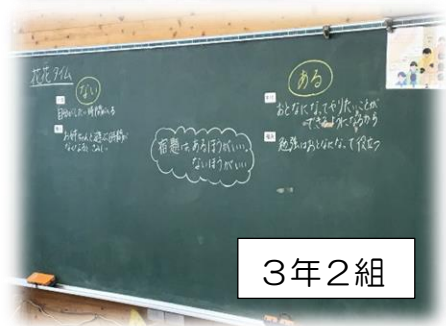 花花タイム
ない
自由がしたい時間がへる
お姉ちゃんと遊ぶ時間が
ないとさみしい
宿題は、あるほうがいい、
ないほうがいい
ある
おとなになってやりたいことが
できるようになるから
勉強はおとなになって役立つ
3年2組